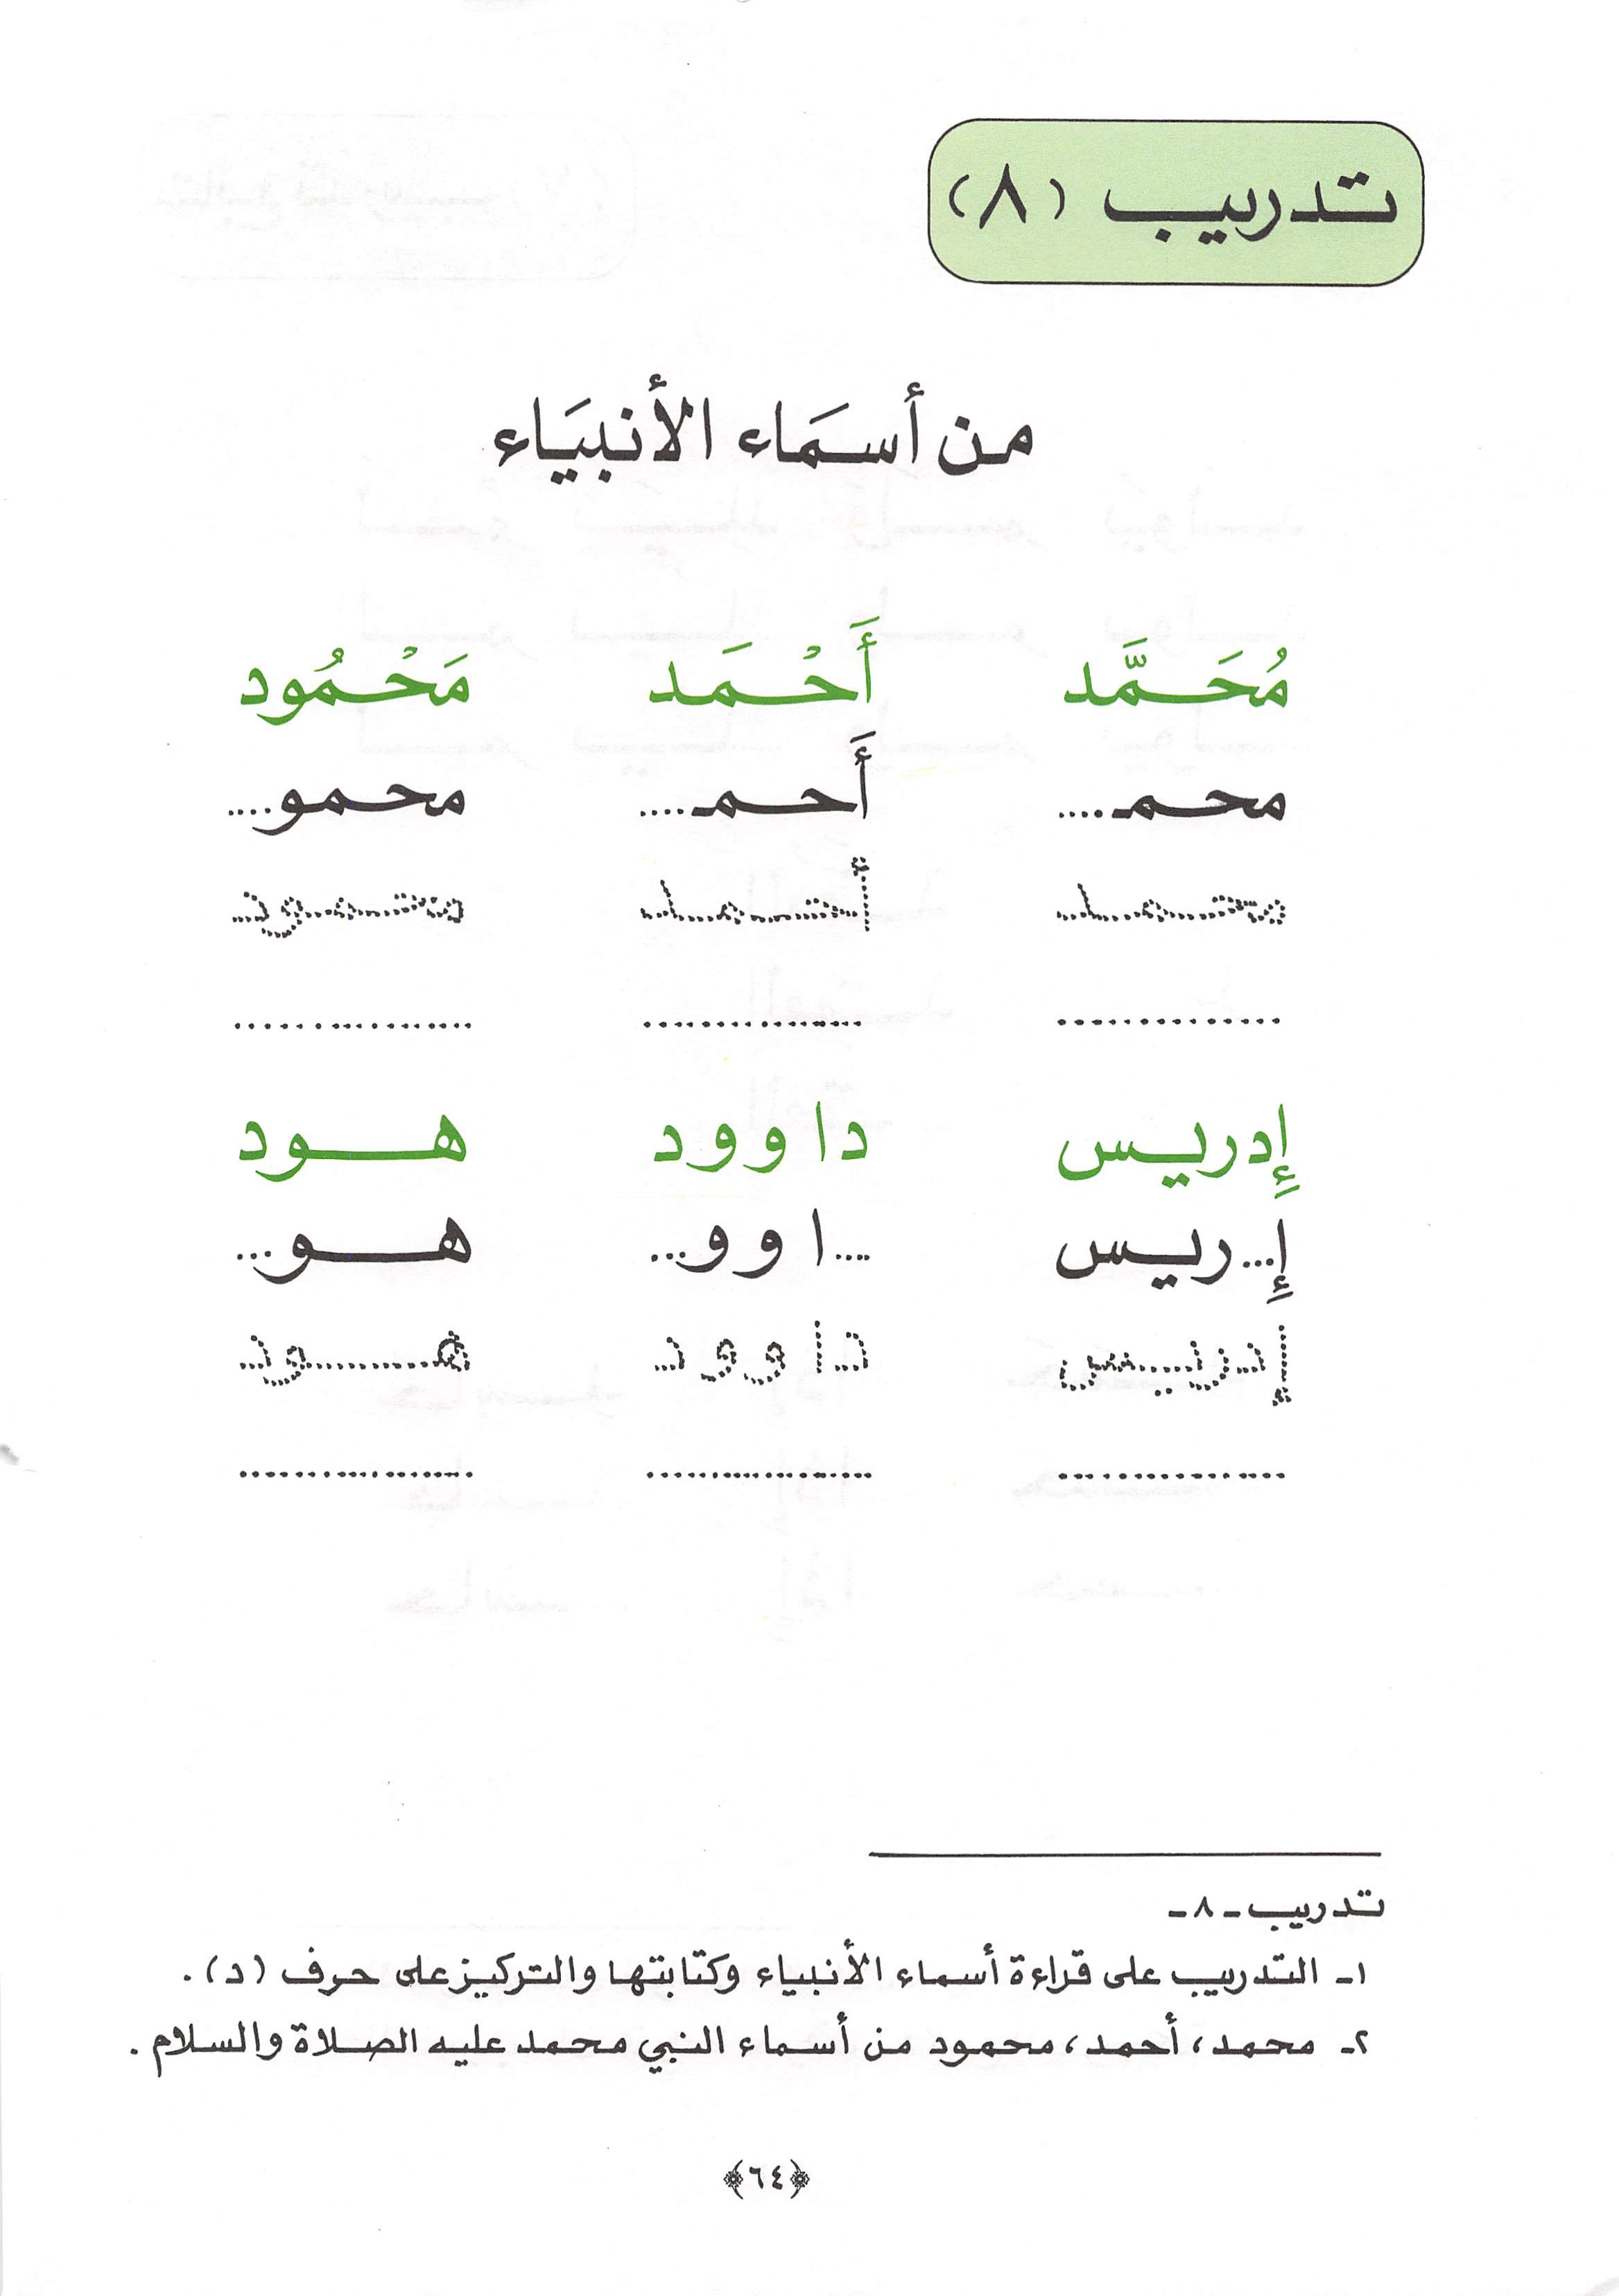 تدريب (٨)
من أسمَاء الأنبيَاء
مُحَمَّد أَحْمَد مَحْمُود
محمـ.... أَحمـ.... محمو....
محمد أحمد محمود
.............. ............... .................
إِدريس داوود هود
إِ...ريس ....اوو... هو...
إدريس داوود هود
............... ................ .................
تدريب -٨-
١- التدريب على قراءة أسماء الأنبياء وكتابتها والتركيز على حرف (د).
٢- محمد، أحمد، محمود من أسماء النبي محمد عليه الصلاة والسلام.
﴿٦٤﴾